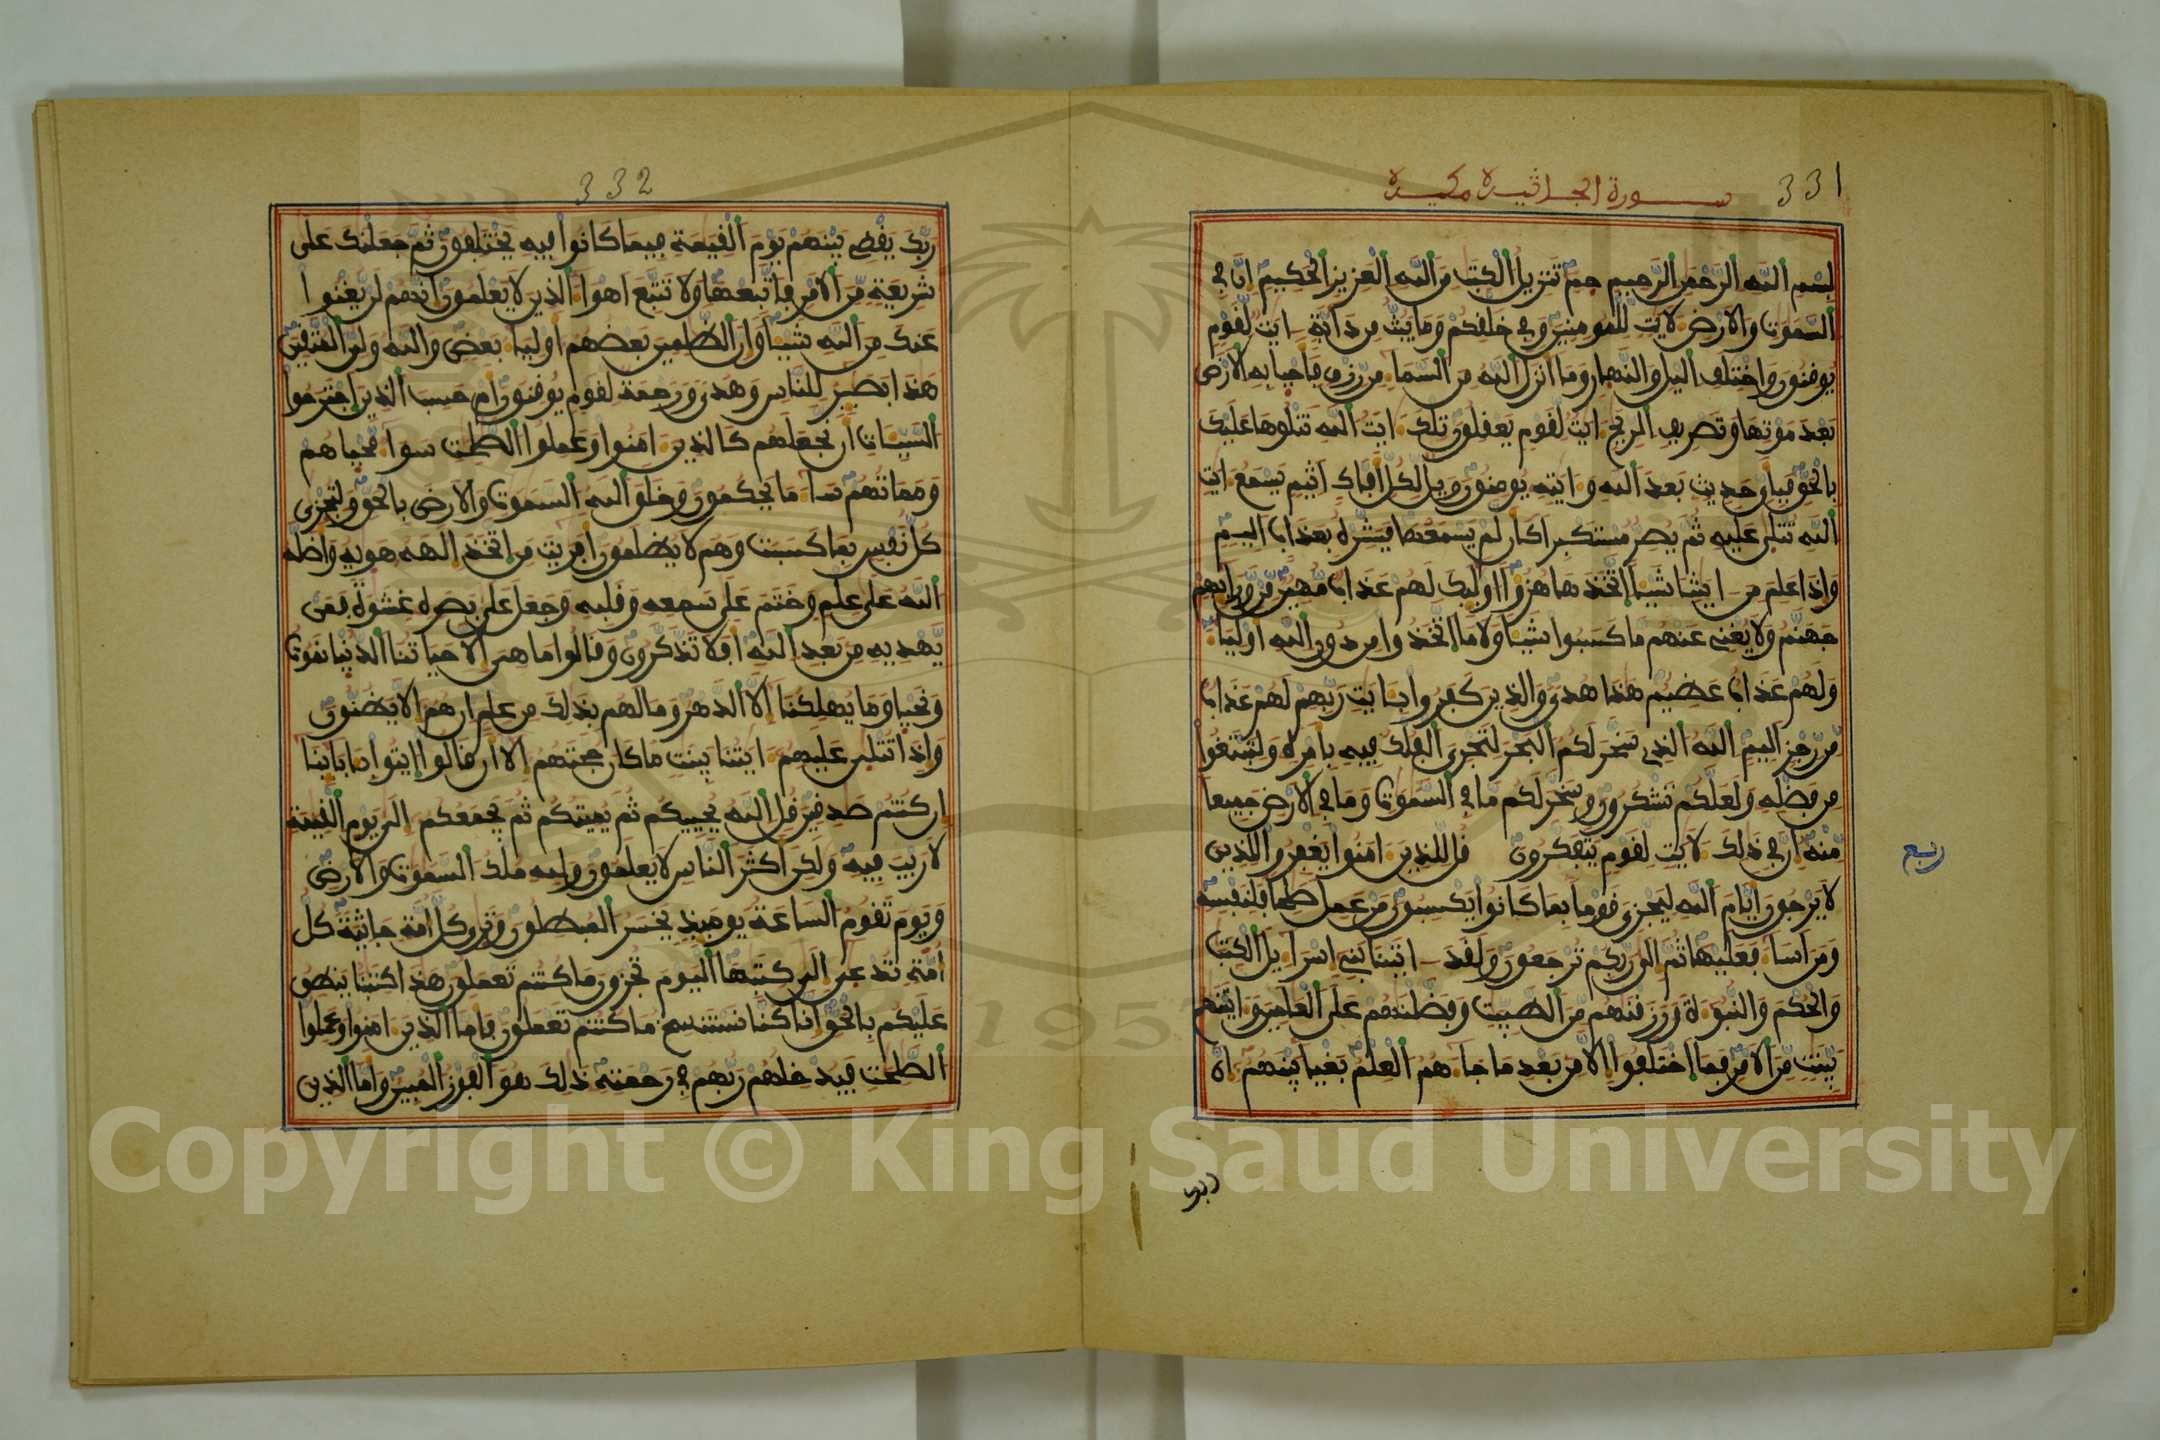 331
ســـورة الجاثية مكيـــة
بسم الله الرحمن الرحيم حم تنزيل الكتب من الله العزيز الحكيم ان في
السموت والارض لايت للمومنين وفي خلفكم وما يبث من دابة ايت لقوم
يوقنون واختلف اليل والنهار وما انزل الله من السماء من رزق فاحيا به الارض
بعد موتها وتصريف الريح ايت لقوم يعقلون تلك ايت الله نتلوها عليك
بالحق فباي حديث بعد الله وايته يومنون ويل لكل افاك اثيم يسمع ايت
الله تتلى عليه ثم يصر مستكبرا كان لم يسمعها فبشره بعذاب اليم
واذا علم من ايتنا شيا اتخذها هزوا اوليك لهم عذاب مهين من ورايهم
جهنم ولا يغني عنهم ما كسبوا شيا ولا ما اتخذوا من دون الله اولياء
ولهم عذاب عظيم هذا هدى والذين كفروا بايت ربهم لهم عذاب
من رجز اليم الله الذي سخر لكم البحر لتجري الفلك فيه بامره ولتبتغوا
من فضله ولعلكم تشكرون وسخر لكم ما في السموت وما في الارض جميعا
منه ان في ذلك لايت لقوم يتفكرون قل للذين امنوا يغفروا للذين
ربع
لا يرجون ايام الله ليجزي قوما بما كانوا يكسبون من عمل صلحا فلنفسه
ومن اساء فعليها ثم الى ربكم ترجعون ولقد اتينا بني اسرايل الكتب
والحكم والنبوة ورزقنهم من الطيبت وفضلنهم على العلمين واتينهم
بينت من الامر فما اختلفوا الا من بعد ما جاءهم العلم بغيا بينهم ان
ربك
332
ربك يقضي بينهم يوم القيمة فيما كانوا فيه يختلفون ثم جعلنك على
شريعة من الامر فاتبعها ولا تتبع اهواء الذين لا يعلمون انهم لن يغنوا
عنك من الله شيا وان الظلمين بعضهم اولياء بعض والله ولي المتقين
هذا بصير للناس وهدى ورحمة لقوم يوقنون ام حسب الذين اجترحوا
السيات ان نجعلهم كالذين امنوا وعملوا الصلحت سواء محياهم
ومماتهم ساء ما يحكمون وخلق الله السموت والارض بالحق ولتجزى
كل نفس بما كسبت وهم لا يظلمون افريت من اتخذ الهه هويه واضله
الله على علم وختم على سمعه وقلبه وجعل على بصره غشوة فمن
يهديه من بعد الله افلا تذكرون وقالوا ما هي الا حياتنا الدنيا نموت
ونحيا وما يهلكنا الا الدهر وما لهم بذلك من علم ان هم الا يظنون
واذا تتلى عليهم ايتنا بينت ما كان حجتهم الا ان قالوا ايتوا بابابنا
ان كنتم صدقين قل الله يحييكم ثم يميتكم ثم يجمعكم الى يوم القيمة
لا ريب فيه ولكن اكثر الناس لا يعلمون ولله ملك السموت والارض
ويوم تقوم الساعة يوميذ يخسر المبطلون وترى كل امة جاثية كل
امة تدعى الى كتبها اليوم تجزون ما كنتم تعملون هذا كتبنا ينطق
عليكم بالحق انا كنا نستنسخ ما كنتم تعملون فاما الذين امنوا وعملوا
الصلحت فيدخلهم ربهم في رحمته ذلك هو الفوز المبين واما الذين
1957
Copyright © King Saud University